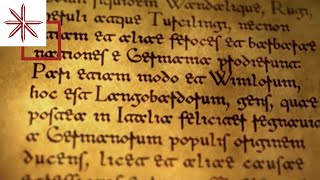 siquidem Wandalique, Rugi,
atque Turcilingi, necnon
etiam et aliae feroces et barbarae
nationes e Germania prodierunt.
Pari etiam modo et Winilorum,
hoc est Langobardorum, gens, quae
postea in Italia feliciter regnavit
a Germanorum populis originem
ducens, licet et aliae causae